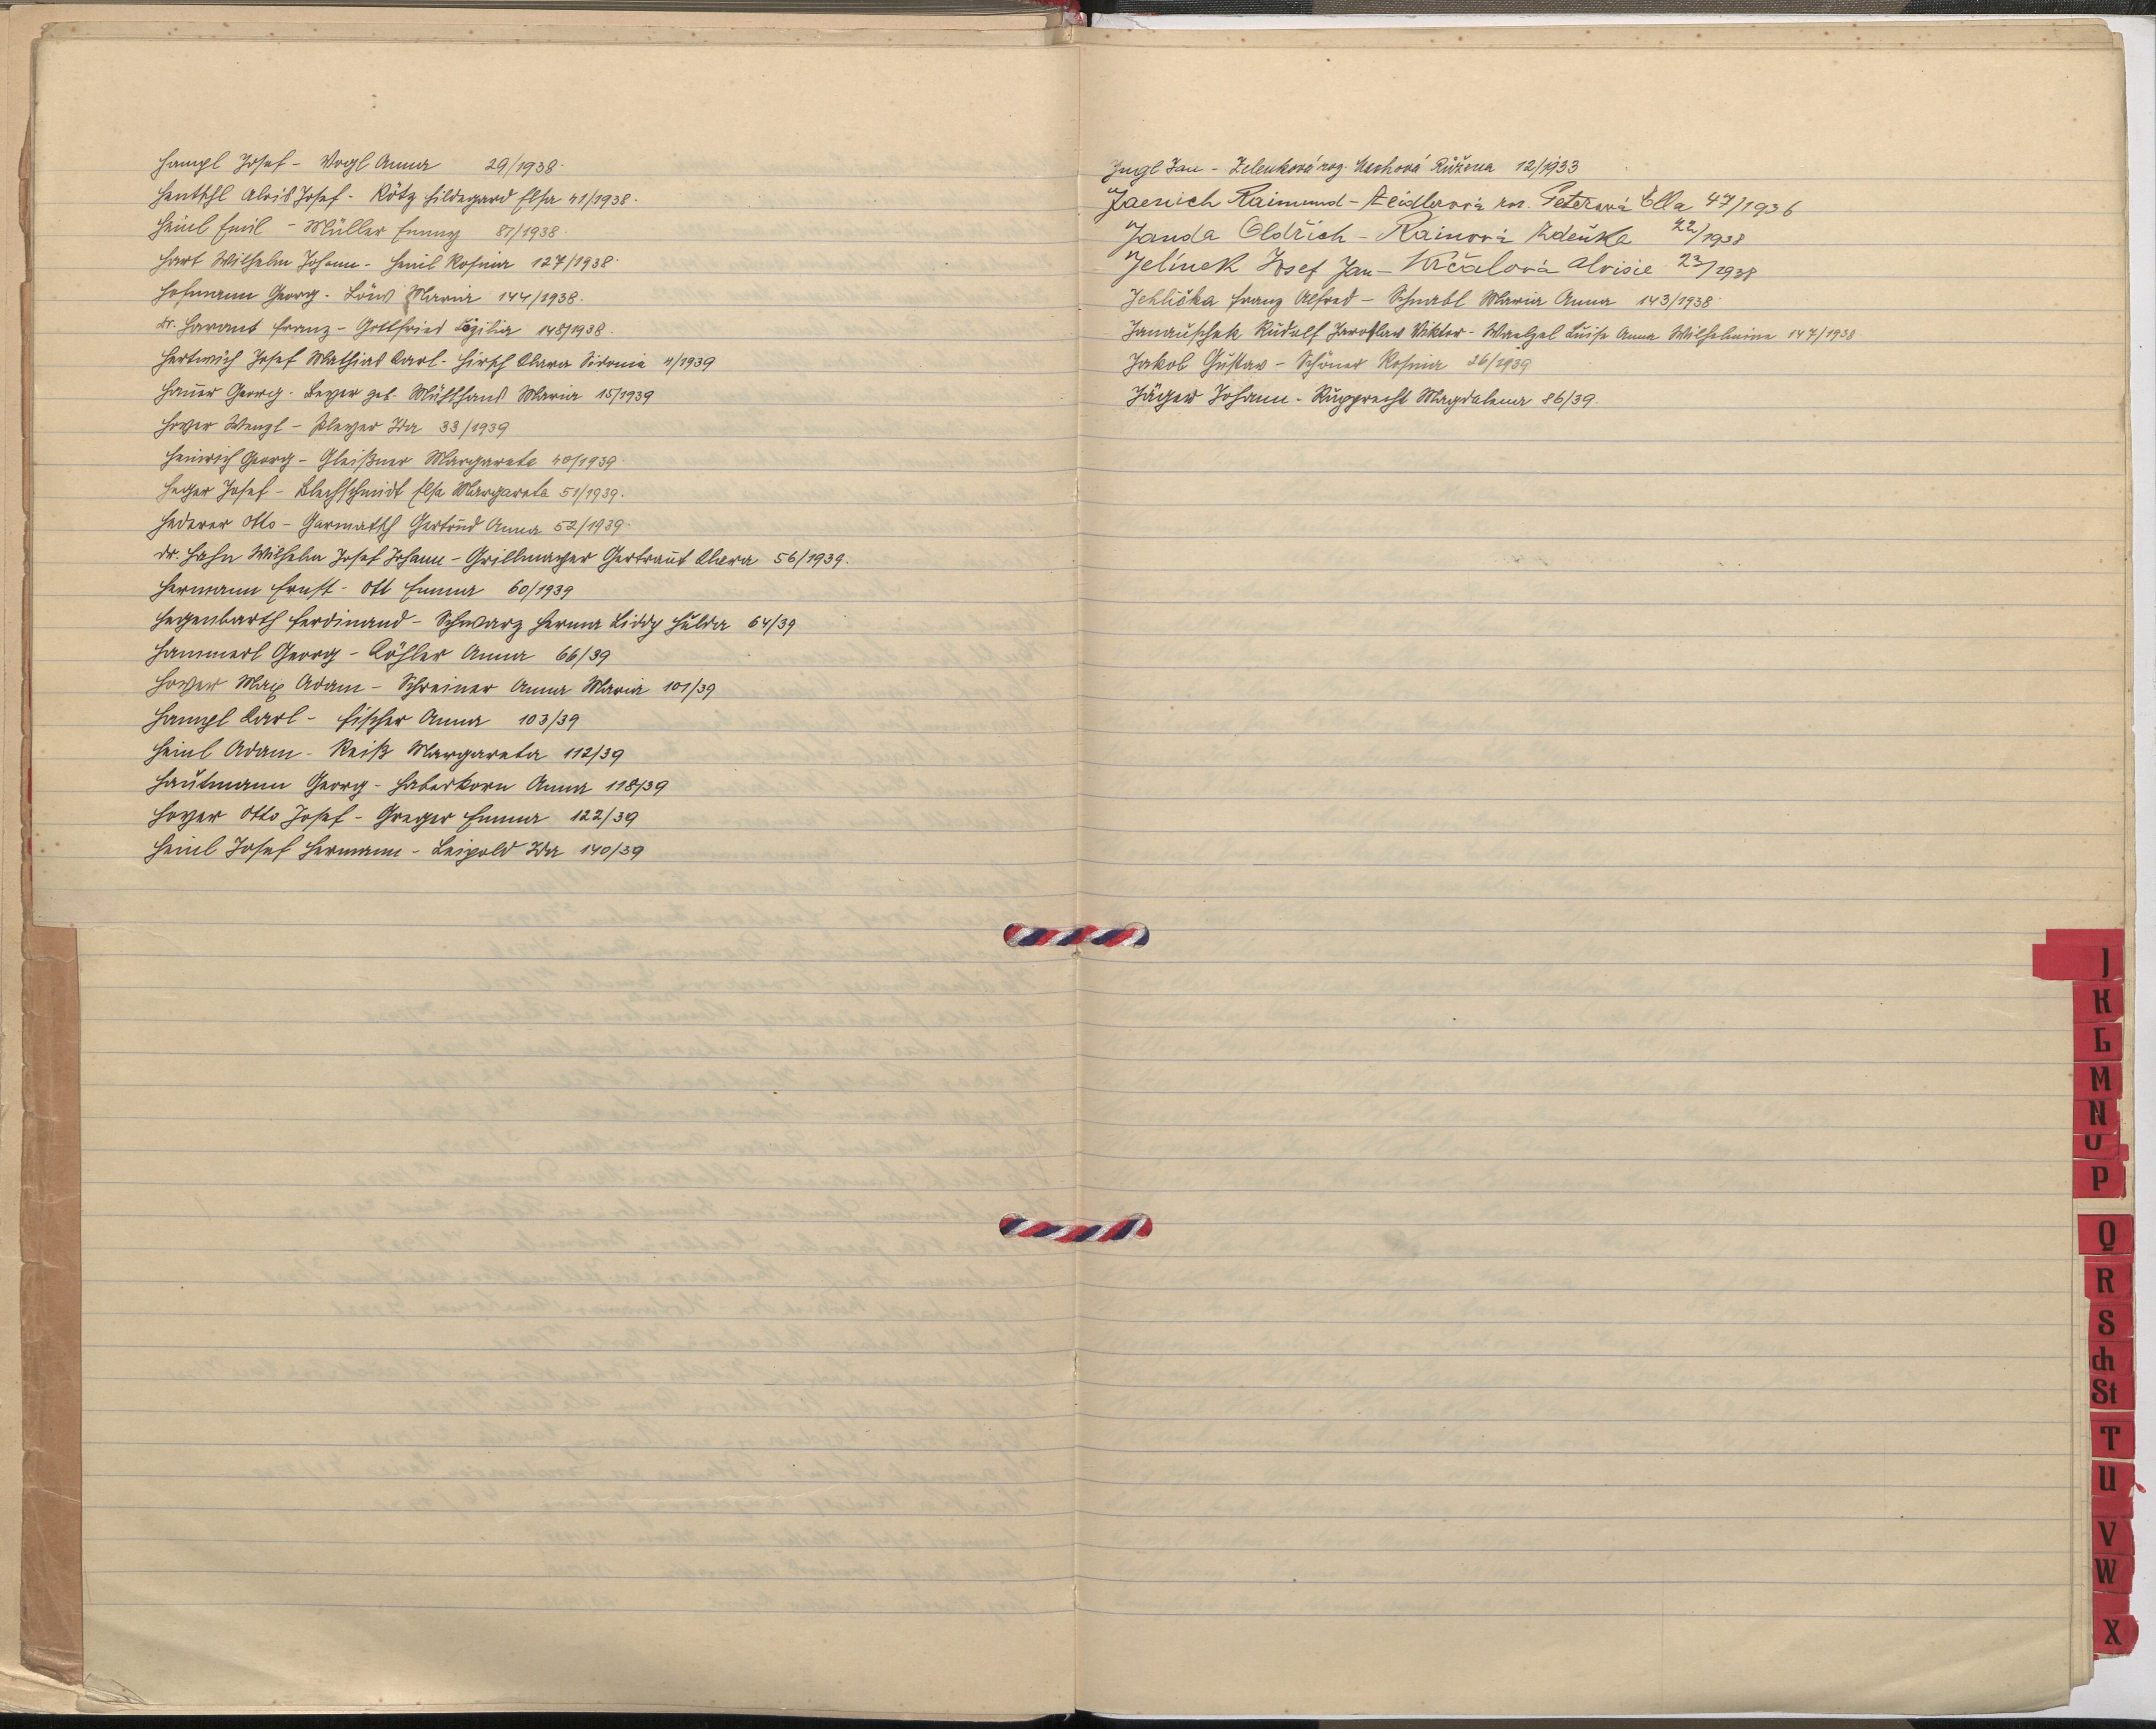 Hampl Josef - Vogl Anna 29/1938.
Hentschl Alois Josef - Kötz Hildegard Elsa 41/1938.
Heinl Emil - Müller Emmy 87/1938.
Hart Wilhelm Johann - Heinl Rosina 127/1938.
Hofmann Georg - Löw Maria 144/1938.
Dr. Harant Franz - Gottfried Cäzilia 148/1938.
Hertwich Josef Mathias Karl - Hirsch Klara Sidonie 4/1939
Hauer Georg - Beyer geb. Mühlhans Maria 15/1939
Hoyer Wenzl - Pleyer Ida 33/1939
Heinrich Georg - Gleißner Margarete 40/1939.
Heger Josef - Blechschmidt Elsa Margareta 51/1939.
Hederer Otto - Garmatsch Gertrud Anna 52/1939.
dr. Hahn Wilhelm Josef Johann - Grillmayer Gertraut Klara 56/1939.
Hermann Ernst - Ott Emma 60/1939
Hegenbarth Ferdinand - Schwarz Herma Liddy Hulda 64/39
Hammerl Georg - Köhler Anna 66/39
Hoyer Max Adam - Schreiner Anna Maria 101/39
Hampl Karl - Fischer Anna 103/39
Heinl Adam - Reiß Margareta 112/39
Hautmann Georg - Haberkorn Anna 118/39
Hoyer Otto Josef - Greger Emma 122/39
Heinl Josef Hermann - Leipold Ida 140/39
Jngl Jan - Zelenková roz. Machová Růžena 12/1933
Jaenich Raimund - Zeidlerová roz. Peterová Ella 47/1936
Janda Oldřich - Rainová Zdeňka 22/1938
Jelínek Josef Jan - Krčálová Aloisie 23/1938
Jehlička Franz Alfred - Schnabl Maria Anna 143/1938.
Janauschek Rudolf Jaroslaw Viktor - Waelzel Luise Anna Wilhelmine 147/1938.
Jakob Gustav - Schöner Rosina 26/1939
Jäger Johann - Rupprecht Magdalena 86/39.
J
K
L
M
N
O
P
Q
R
S
ch
St
T
U
V
W
X